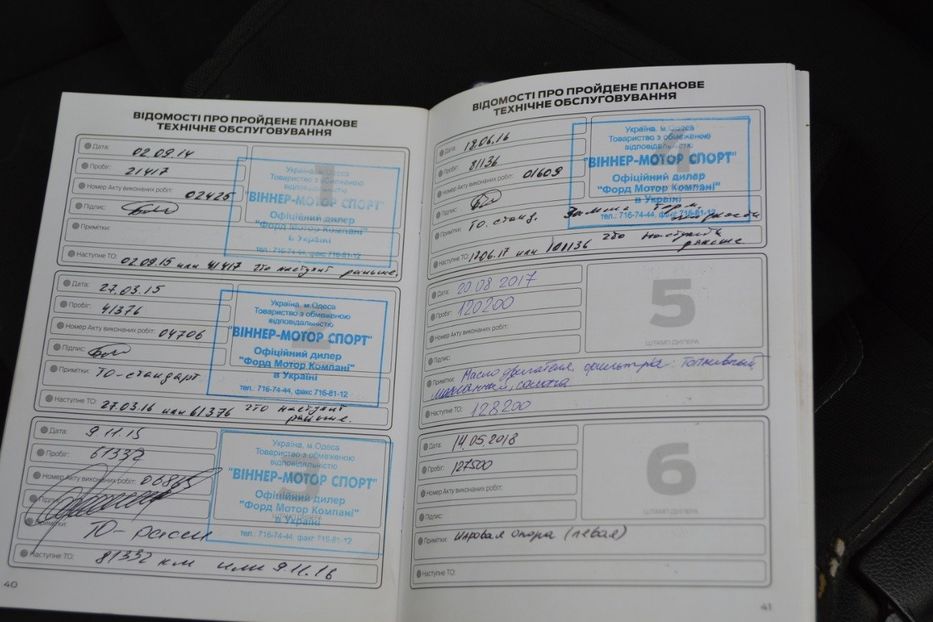 ВІДОМОСТІ ПРО ПРОЙДЕНЕ ПЛАНОВЕ
ТЕХНІЧНЕ ОБСЛУГОВУВАННЯ
Дата: 02.09.14
Пробіг: 21417
Номер Акту виконаних робіт: 02425
Підпис:
Примітки:
Наступне ТО: 02.09.15 или 41417 что наступит раньше.
Україна, м.Одеса
Товариство з обмеженою
відповідальністю
"ВІННЕР-МОТОР СПОРТ"
Офіційний дилер
"Форд Мотор Компані"
в Україні
тел.: 716-74-44, факс 716-81-12
Дата: 27.03.15
Пробіг: 41376
Номер Акту виконаних робіт: 04706
Підпис:
Примітки: ТО-стандарт
Наступне ТО: 27.03.16 или 61376 что наступит
раньше.
Україна, м.Одеса
Товариство з обмеженою
відповідальністю
"ВІННЕР-МОТОР СПОРТ"
Офіційний дилер
"Форд Мотор Компані"
в Україні
тел.: 716-74-44, факс 716-81-12
Дата: 9.11.15
Пробіг: 61332
Номер Акту виконаних робіт:
Підпис:
Примітки:
Наступне ТО: 81332 км или 9.11.16
3
Україна, м.Одеса
Товариство з обмеженою
відповідальністю
"ВІННЕР-МОТОР СПОРТ"
Офіційний дилер
"Форд Мотор Компані"
в Україні
тел.: 716-74-44, факс 716-81-12
40
ВІДОМОСТІ ПРО ПРОЙДЕНЕ ПЛАНОВЕ
ТЕХНІЧНЕ ОБСЛУГОВУВАННЯ
Дата: 18.06.16
Пробіг: 81136
Номер Акту виконаних робіт: 01609
Підпис:
Примітки: ТО-станд. Замена торм. жидкости
Наступне ТО: 17.06.17 или 101136 что наступит
раньше.
4
Україна, м.Одеса
Товариство з обмеженою
відповідальністю
"ВІННЕР-МОТОР СПОРТ"
Офіційний дилер
"Форд Мотор Компані"
в Україні
тел.: 716-74-44, факс 716-81-12
Дата: 20.08.2017
Пробіг: 120200
Номер Акту виконаних робіт:
Підпис:
Примітки: Масло двигателя, фильтра: топливный,
масляный, салона
Наступне ТО: 128200
5
ШТАМП ДИЛЕРА
Дата: 14.05.2018
Пробіг: 127500
Номер Акту виконаних робіт:
Підпис:
Примітки: Шаровая опора (левая)
Наступне ТО:
6
ШТАМП ДИЛЕРА
41